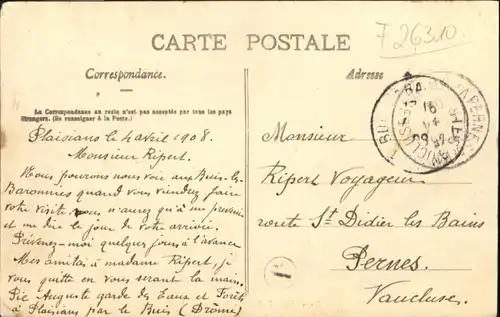 CARTE POSTALE
F 26310
Correspondance.
Adresse
La Correspondance au recto n'est pas acceptée par tous les pays
Etrangers. (Se renseigner à la Poste.)
Plaisians le 4 avril 1908.
Monsieur Ripert.
Nous pouvons nous voir aux Buis-les-
Baronnies quand vous viendrez faire
votre visite vous n'aurez qu'à me prévenir
et me dire le jour de votre arrivée.
Prévenez-moi quelques jours à l'avance
Mes amitiés à madame Ripert, je
vous quitte en vous serrant la main.
Pic Auguste garde des Eaux et Forêts
à Plaisians par le Buis (Drôme)
Monsieur
Ripert Voyageur
route St Didier les Bains
Pernes.
Vaucluse.